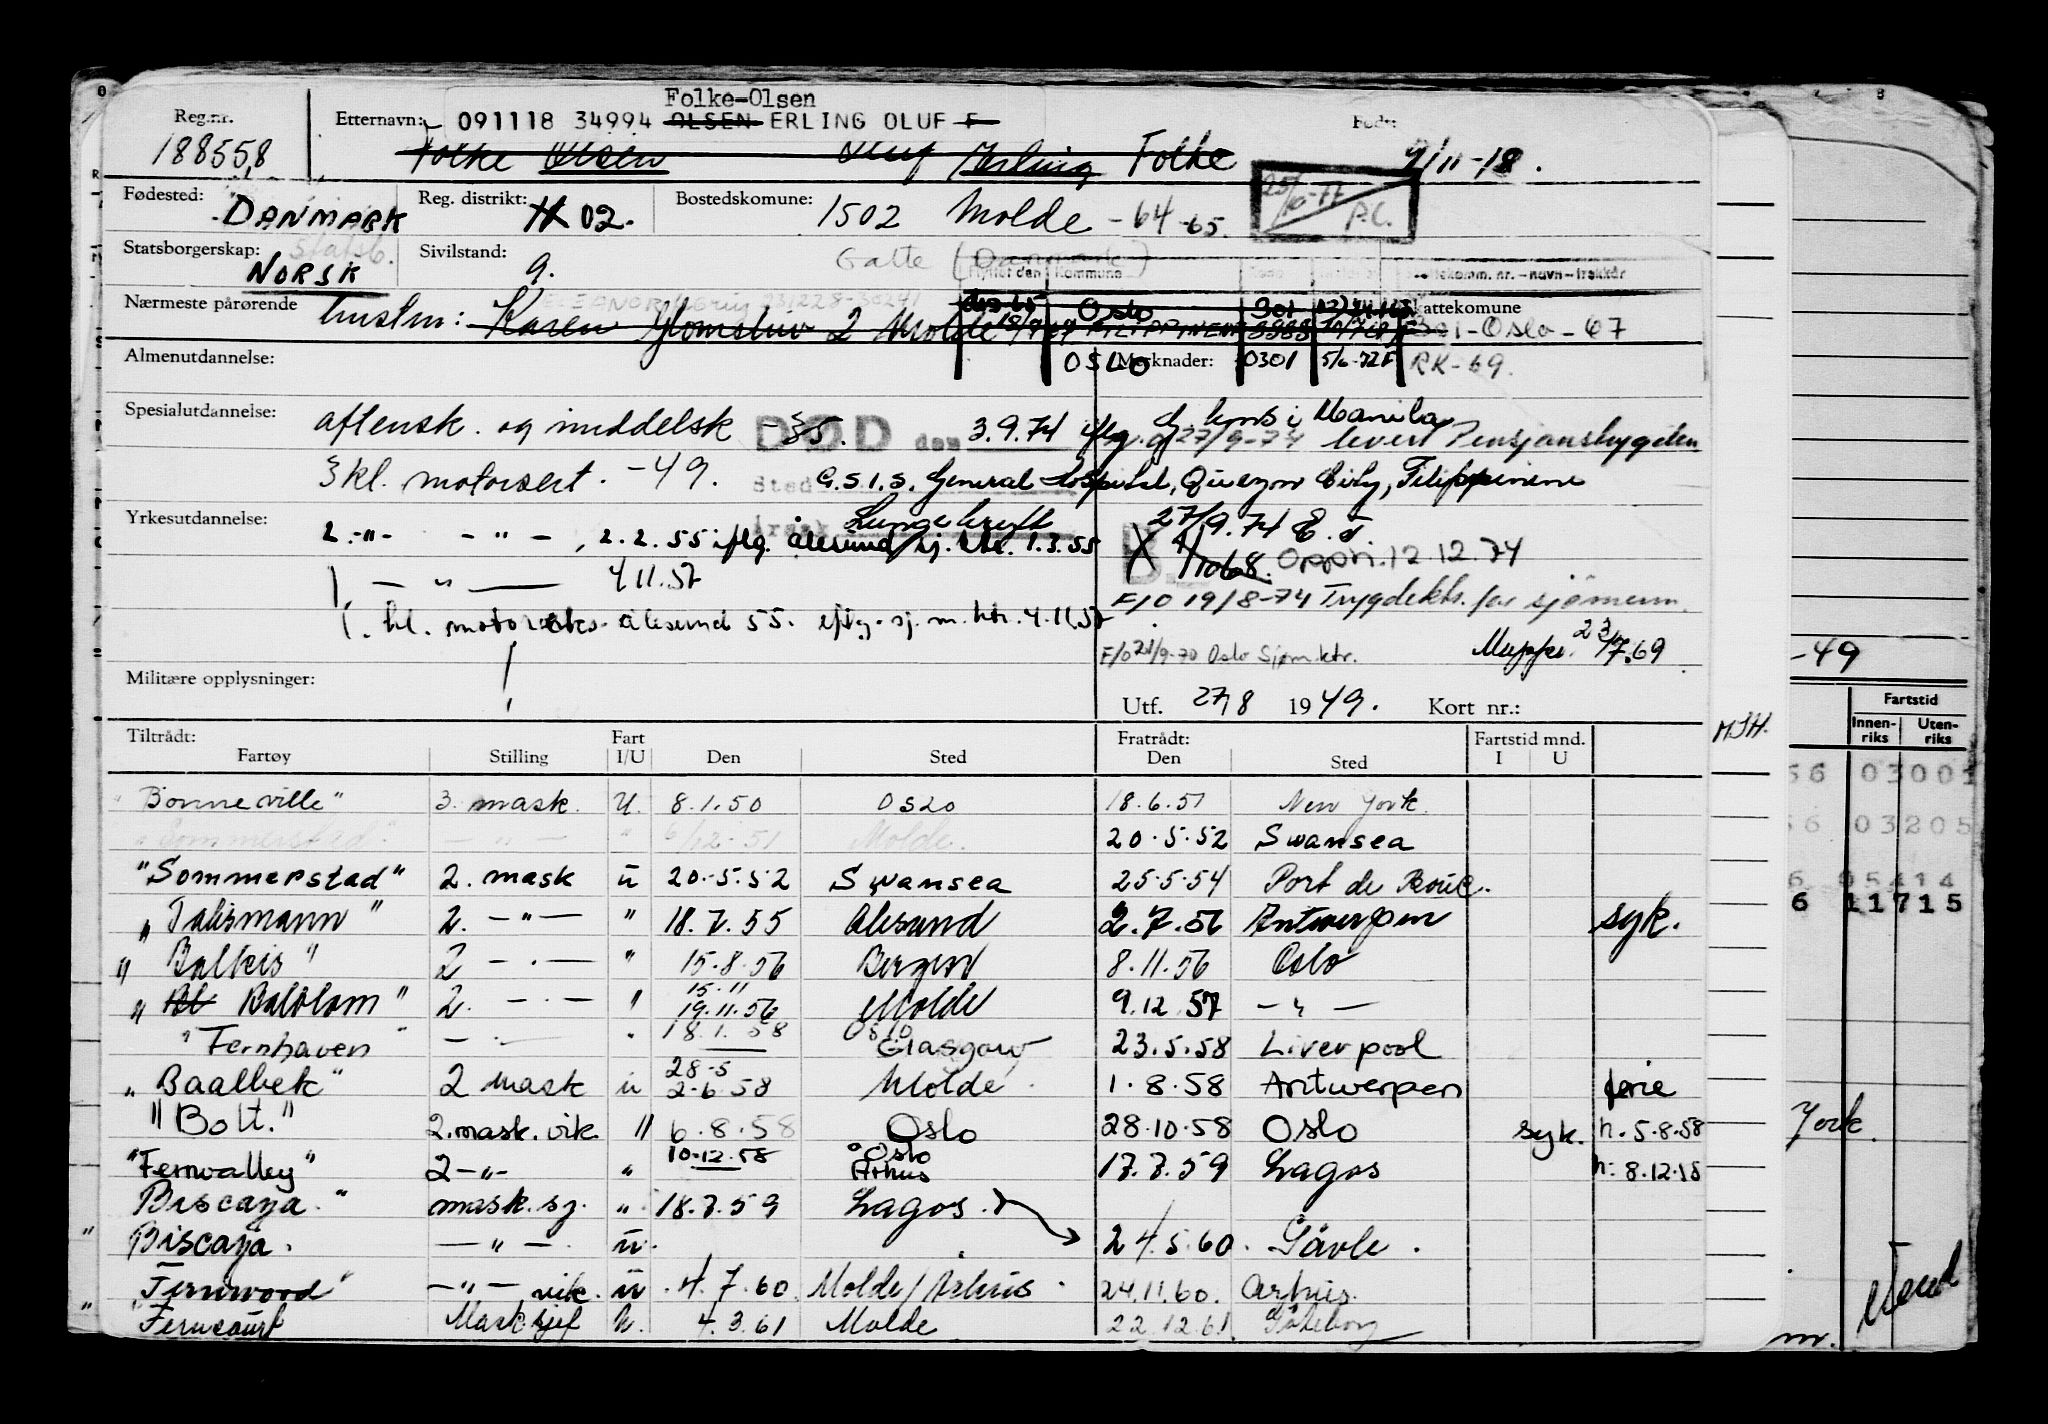 Folke-Olsen
Reg.nr. Etternavn: 091118 34994 OLSEN ERLING OLUF F Født:
188558 Folke Olsen Oluf Erling Folke 9/11-18.
Fødested: DANMARK Reg. distrikt: 02. Bostedskomune: 1502 Molde -64-65. 25/10-77 P.C.
Statsborgerskap: Statsb. Sivilstand: Gatte (Danmark)
NORSK g. Flyttet den Kommune Skattekomm. nr. - navn - trekkår
Nærmeste pårørende hustru: Karen Glomstuv 2 Molde Oslo 301 Skattekomune
FILIPPINENE 301-Oslo-67
Almenutdannelse: OSLO Merknader: 0301 5/6-72F RK-69.
Spesialutdannelse: aftensk. og middelsk -35. DØD den 3.9.74 iflg. gj. kons i Manila
27/9-74 levert Pensjonstrygden
3 kl. motorsert. -49. Sted G.S.I.S. General Hospital, Quezon City, Filippinene
Yrkesutdannelse: Årsak Lungekreft 27/9.74 E.F
2.-"- -"-, 2.2.55 iflg. Ålesund sj. ktr. 1.3.55 X Oppri. 12.12.74
1. -"- 4.11.57
F/O 19/8-74 Trygdekts. for sjømenn.
1. kl. motor Ålesund 55. iflg. sj. m. ktr. 4.11.57
F/O 21/9-70 Oslo Sjøm.ktr. Mappe. 23/7.69
-49
Militære opplysninger:
Utf. 27/8 1949. Kort nr.:
Fartstid
Tiltrådt: Fart Fratrådt: Fartstid mnd. M.I.H. Innen-riks Uten-riks
Fartøy Stilling I/U Den Sted Den Sted I U
"Bonneville" 3. mask. U. 8.1.50 OSLO 18.6.51 New York. 56 03001
"Sommerstad" -"- " 6/12-51 Molde. 20.5.52 Swansea 56 03205
"Sommerstad" 2. mask u 20.5.52 Swansea 25.5.54 Port de Bouc. 6 05414
"Talismann" 2. -"- " 18.7.55 Ålesund 2.7.56 Antwerpen syk. 6 11715
"Balkis" 2 -"- " 15.8.56 Bergen 8.11.56 Oslo
15.11
"Bl Baldlom" 2. -"- " 19.11.56 Molde 9.12.57 -"-
"Fernhaven" -"- " 18.1.58 Oslo Glasgow 23.5.58 Liverpool
28-5
"Baalbek" 2 mask u 2-6.58 Molde 1.8.58 Antwerpen ferie
"Bolt." 2. mask. vik. " 6.8.58 Oslo 28.10.58 Oslo syk. h. 5.8.58 York.
"Fernvalley" 2-"- " 10-12.58 Oslo Århus 17.7.59 Lagos h. 8.12.58
Biscaya." mask.sj. " 18.7.59 Lagos.
"Biscaya. -"-. u. 24.5.60. Gävle.
Fernwood" -"- vik. u. 4.7.60. Molde/Århus 24.11.60. Århus.
"Ferncourt Masksjef u. 4.3.61 Molde 22.12.61 Göteborg
m.